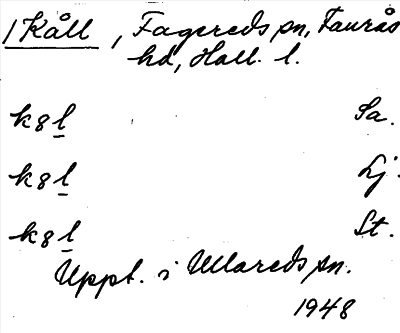 1 Kåll, Fagereds sn, Faurås
hd, Hall. l.
kgl Sa.
kgl Lj.
kgl St.
Uppt. i Ullareds sn.
1948